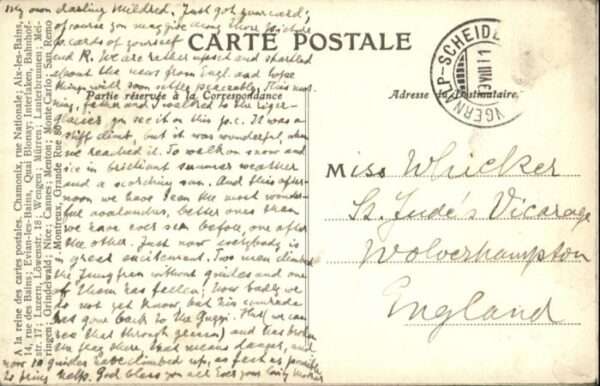 My own darling Mildred. Just got your card;
of course you may give away those picture
p. cards of yourself
and R. We are rather upset and startled
about the news from Engl. and hope
things will soon settle peaceably. This mor-
ning, father and I walked to the
glacier you see it on this p.c. It was a
stiff climb, but it was wonderful when
we reached it. To walk on snow and
ice in brilliant summer weather
and a scorching sun. And this after-
noon we have seen the most wonder-
ful avalanches, better ones than
we have ever seen before, one after
the other. Just now everybody is
in great excitement. Two men climbed
the Jungfrau without guides and one
of them has fallen. How badly we
do not yet know, but his comrade
has gone back to the Guggi. This we can
see that through glasses) and has
the flag there, that means danger, and
now 10 guides have climbed up, as fast as possible
to bring help. God bless you all Ever your loving Mother
CARTE POSTALE
Partie réservée à la Correspondance
Adresse du Destinataire.
SCHEIDEGG
Miss Whicker
St. Jude's Vicarage
Wolverhampton
England
A la reine des cartes postales, Chamonix, rue Nationale; Aix-les-Bains,
14, rue des Bains; Evian-les-Bains, Quai Blonay; Interlaken, Bahnhof-
str. 17; Luzern, Löwenstr. 18; Wengen; Mürren; Lauterbrunnen; Mei-
ringen; Grindelwald; Nice; Cannes; Menton; Monte Carlo; San Remo
Montreux, Grande Rue 80